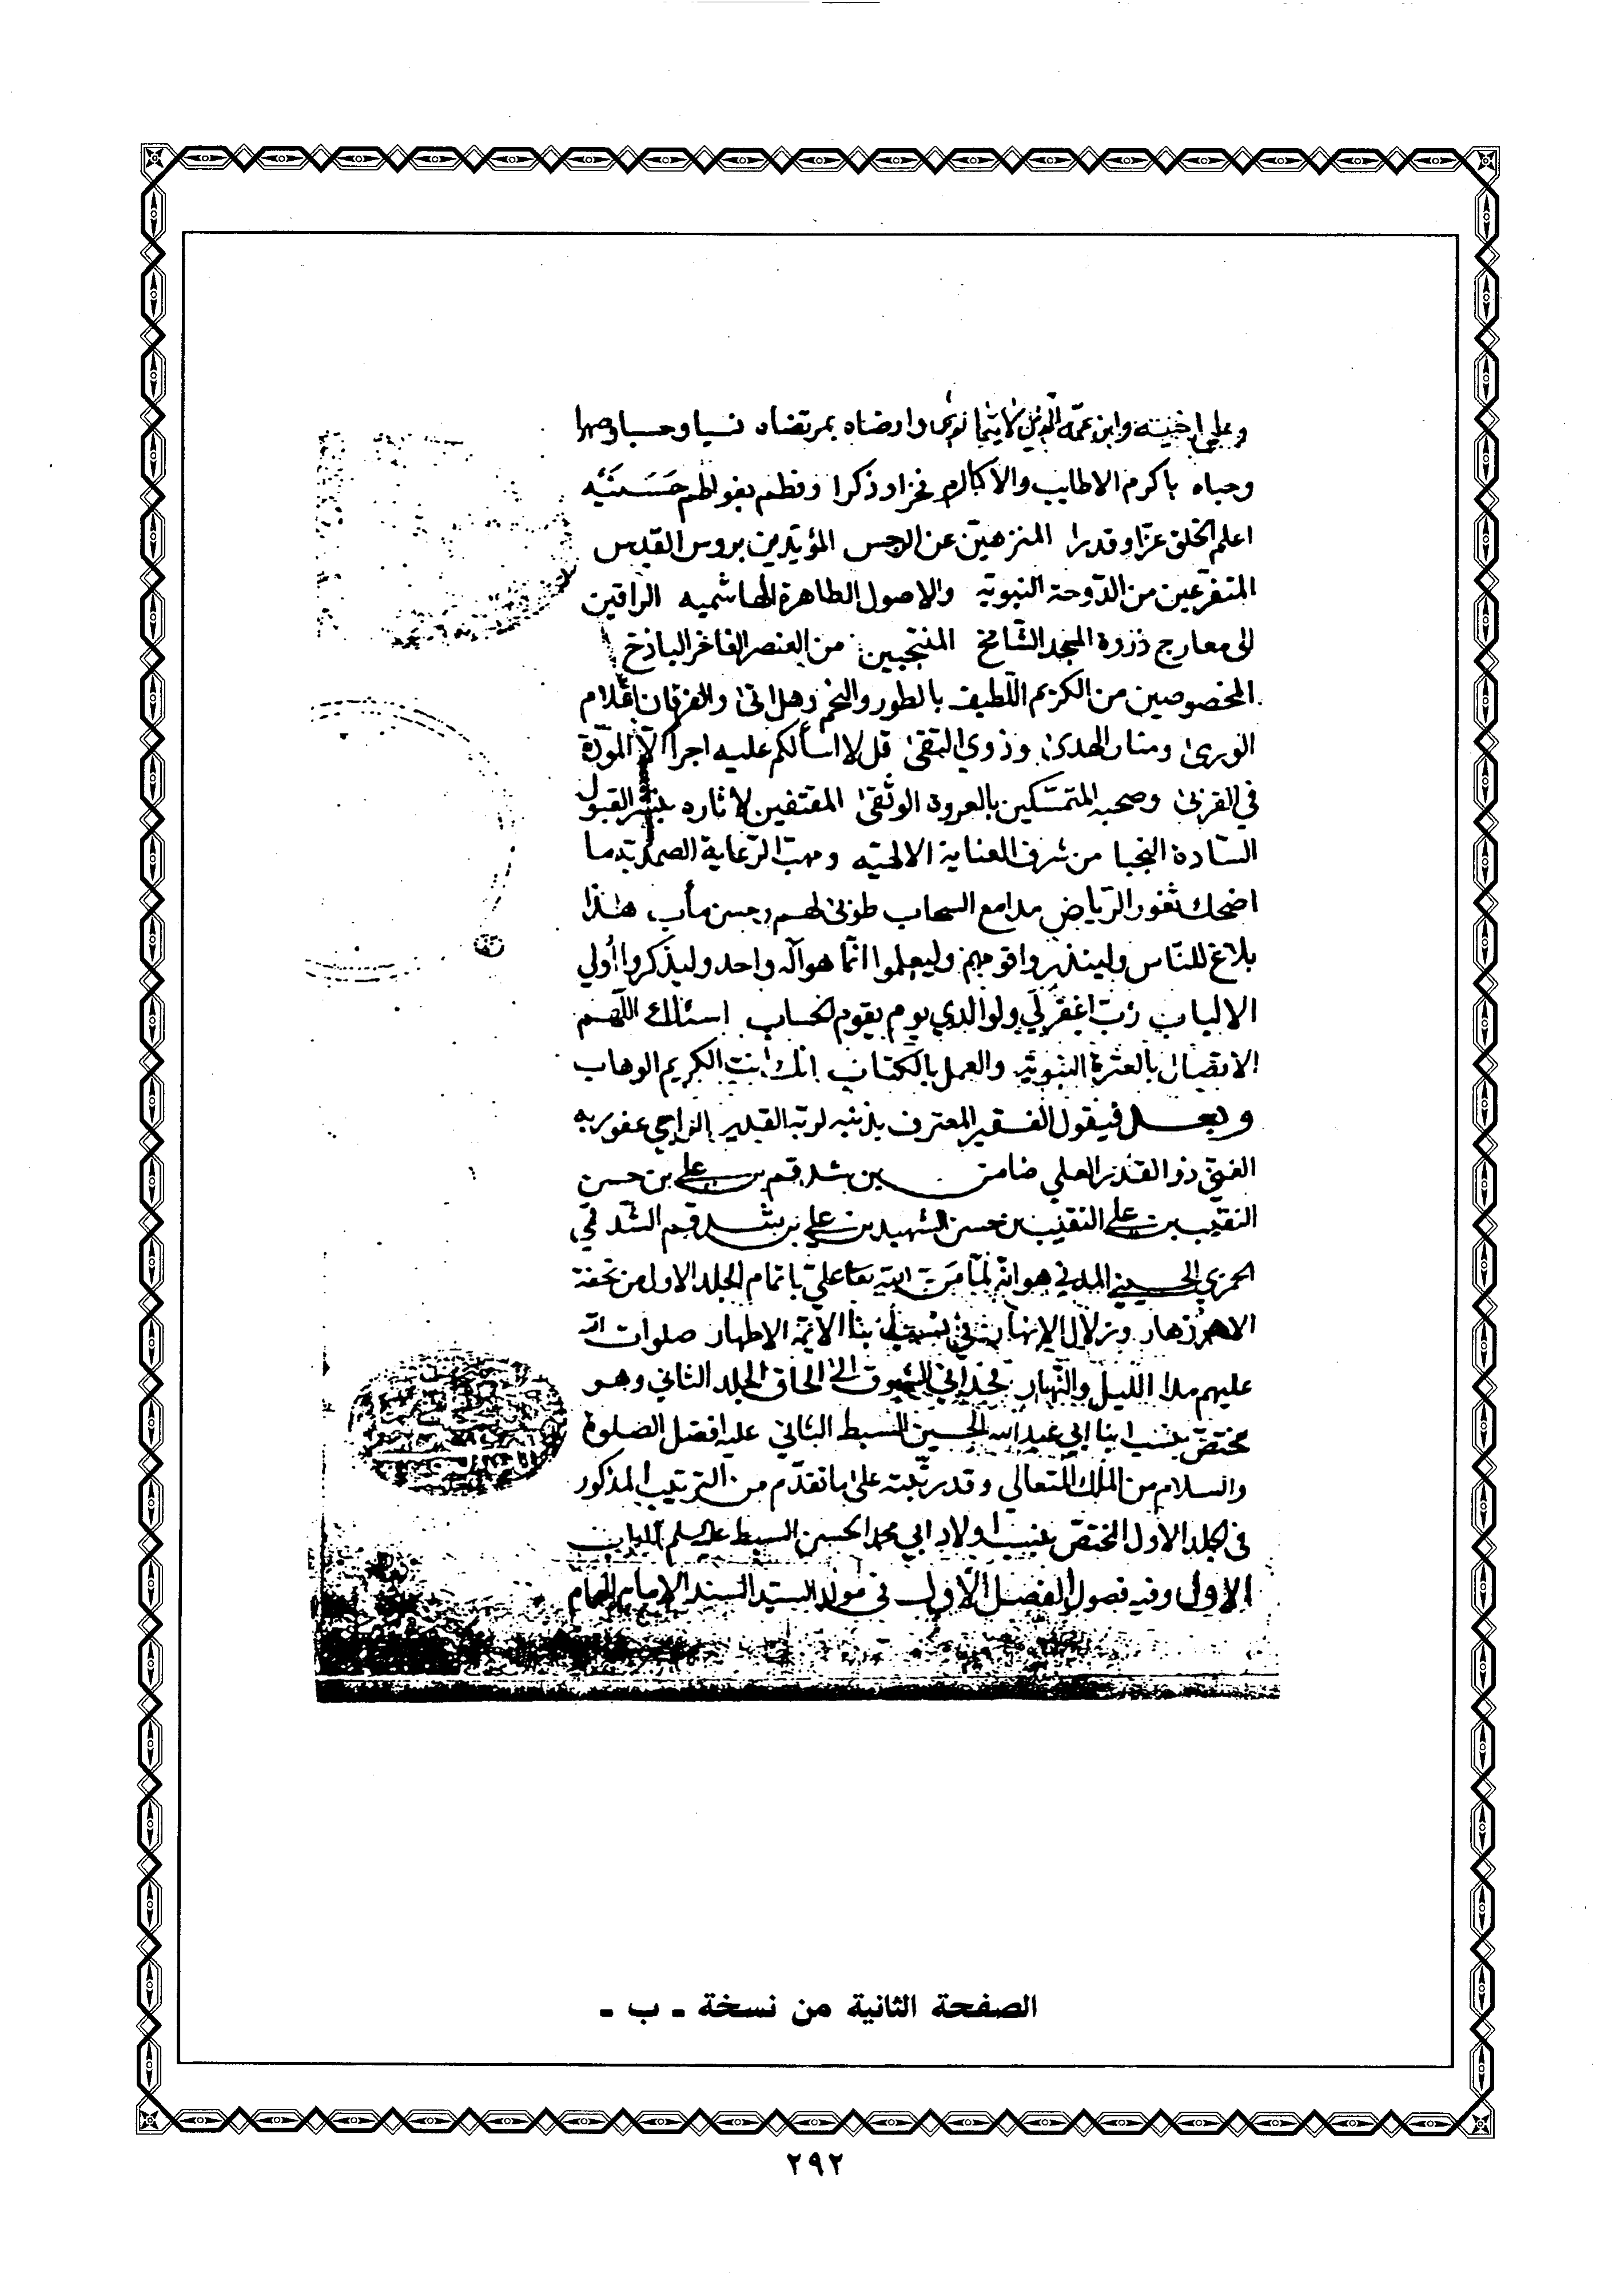 وابن عمه وارضاه بمرتضاه نسبا وحسبا وصهرا
وحباه باكرم الاطايب والاكارم فخرا وذكرا وفطم بفواطم حسنيه
اعلم الخلق عزا وقدرا المنزهين عن الرجس المؤيدين بروس القدس
المتفرّعين من الدّوحة النبوية والاصول الطاهرة الهاشميه الراقين
الى معارج ذروة المجد الشّامخ المنتجبين من العنصر الفاخر الباذخ
المخصوصين من الكريم اللّطيف بالطور والنجم وهل اتى والفرقان اعلام
الورى ومنار الهدى وذوي التقى قل لا اسألكم عليه اجرا الّا المودّة
في القربى وصحبه المتمسّكين بالعروة الوثقى المقتفين لاثاره القبول
السّادة النجبا من شرف العناية الالهيّه ومهبّ الرّعاية الصمديّة ما
اضحك ثغور الرّياض مدامع السحاب طوبى لهم وحسن مأب هذا
بلاغ للنّاس ولينذروا قومهم وليعلموا انّما هو آله واحد وليذكروا أولي
الالباب ربّ اغفر لي ولوالدي يوم يقوم الحساب اسئلك اللّهم
الاتصال بالعترة النبويّة والعمل بالكتاب انّك انت الكريم الوهاب
وبعد فيقول الفقير المعترف بذنبه لربّه القدير الراجي عفو ربه
الغنيّ ذو القدر العلي ضامن بن شدقم بن علي بن حسن
النقيب بن علي النقيب بن حسن الشهيد بن علي بن شدقم الشّدقمي
الحمزي الحسيني المدني هو انّه لمّا منّ الله تعا عليّ باتمام الجلد الاول من تحفة
الازهار وزلال الانهار في نسب ابنا الائمّة الاطهار صلوات الله
عليهم مدا الليل والنّهار الى الحاق الجلد الثاني وهو
مختصّ بنسب ابنا ابي عبد الله الحسين السبط الثاني عليه افضل الصلوة
والسلام من الملك المتعالي وقد رتّبته على ما تقدّم من الترتيب المذكور
في الجلد الاول المختصّ بنسب اولاد ابي محمد الحسن السبط عليه السلم الباب
الاول وفيه فصول الفصل الاول في مولد السيّد السند الامام الهمام
الصفحة الثانية من نسخة - ب -
٢٩٢